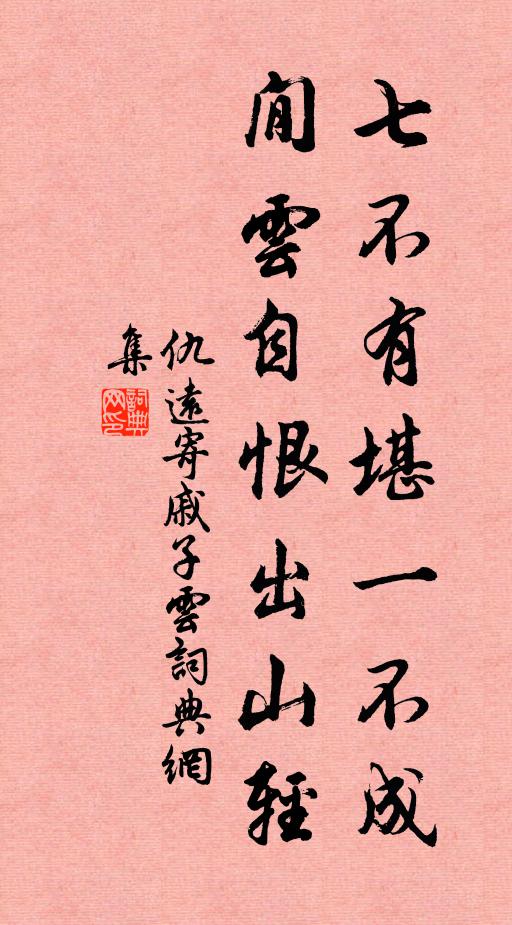 七不有堪一不成
閒雲自恨出山輕
仇遠寄戚子雲詞典網
集
詞典
网印